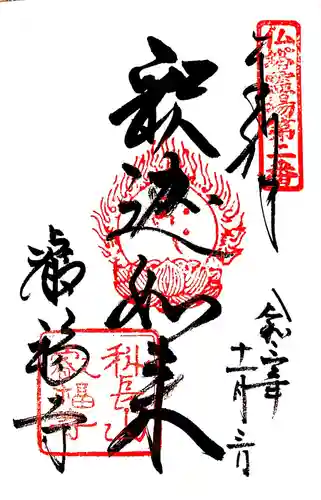 奉拝
仏塔霊場第二番
釈迦如来
令和年
十一月三日
叡福寺
科長山
叡福寺